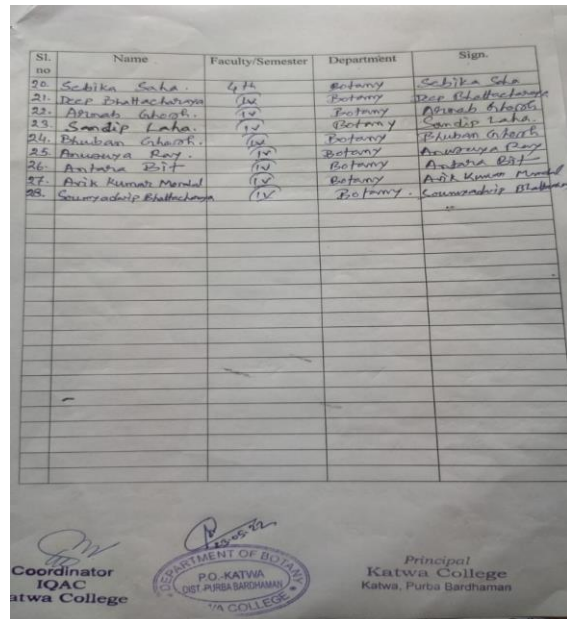 Sl. no Name Faculty/Semester Department Sign.
20. Sebika Saha. 4th Botany Sebika Saha
21. Deep Bhattacharaya (IV) Botany Deep Bhattacharaya
22. Arnab Ghosh. (IV) Botany Arnab Ghosh
23. Sandip Laha. (IV) Botany Sandip Laha.
24. Bhuban Ghosh. (IV) Botany Bhuban Ghosh
25. Anusuya Ray. (IV) Botany Anusuya Ray
26. Antara Bit (IV) Botany Antara Bit
27. Arik Kumar Mondal (IV) Botany Arik Kumar Mondal
28. Soumyadwip Bhattacharya (IV) Botany. Soumyadwip
23.05.22
Coordinator
IQAC
atwa College
DEPARTMENT OF BOTANY
P.O.-KATWA
DIST.-PURBA BARDHAMAN
WA COLLEGE
Principal
Katwa College
Katwa, Purba Bardhaman